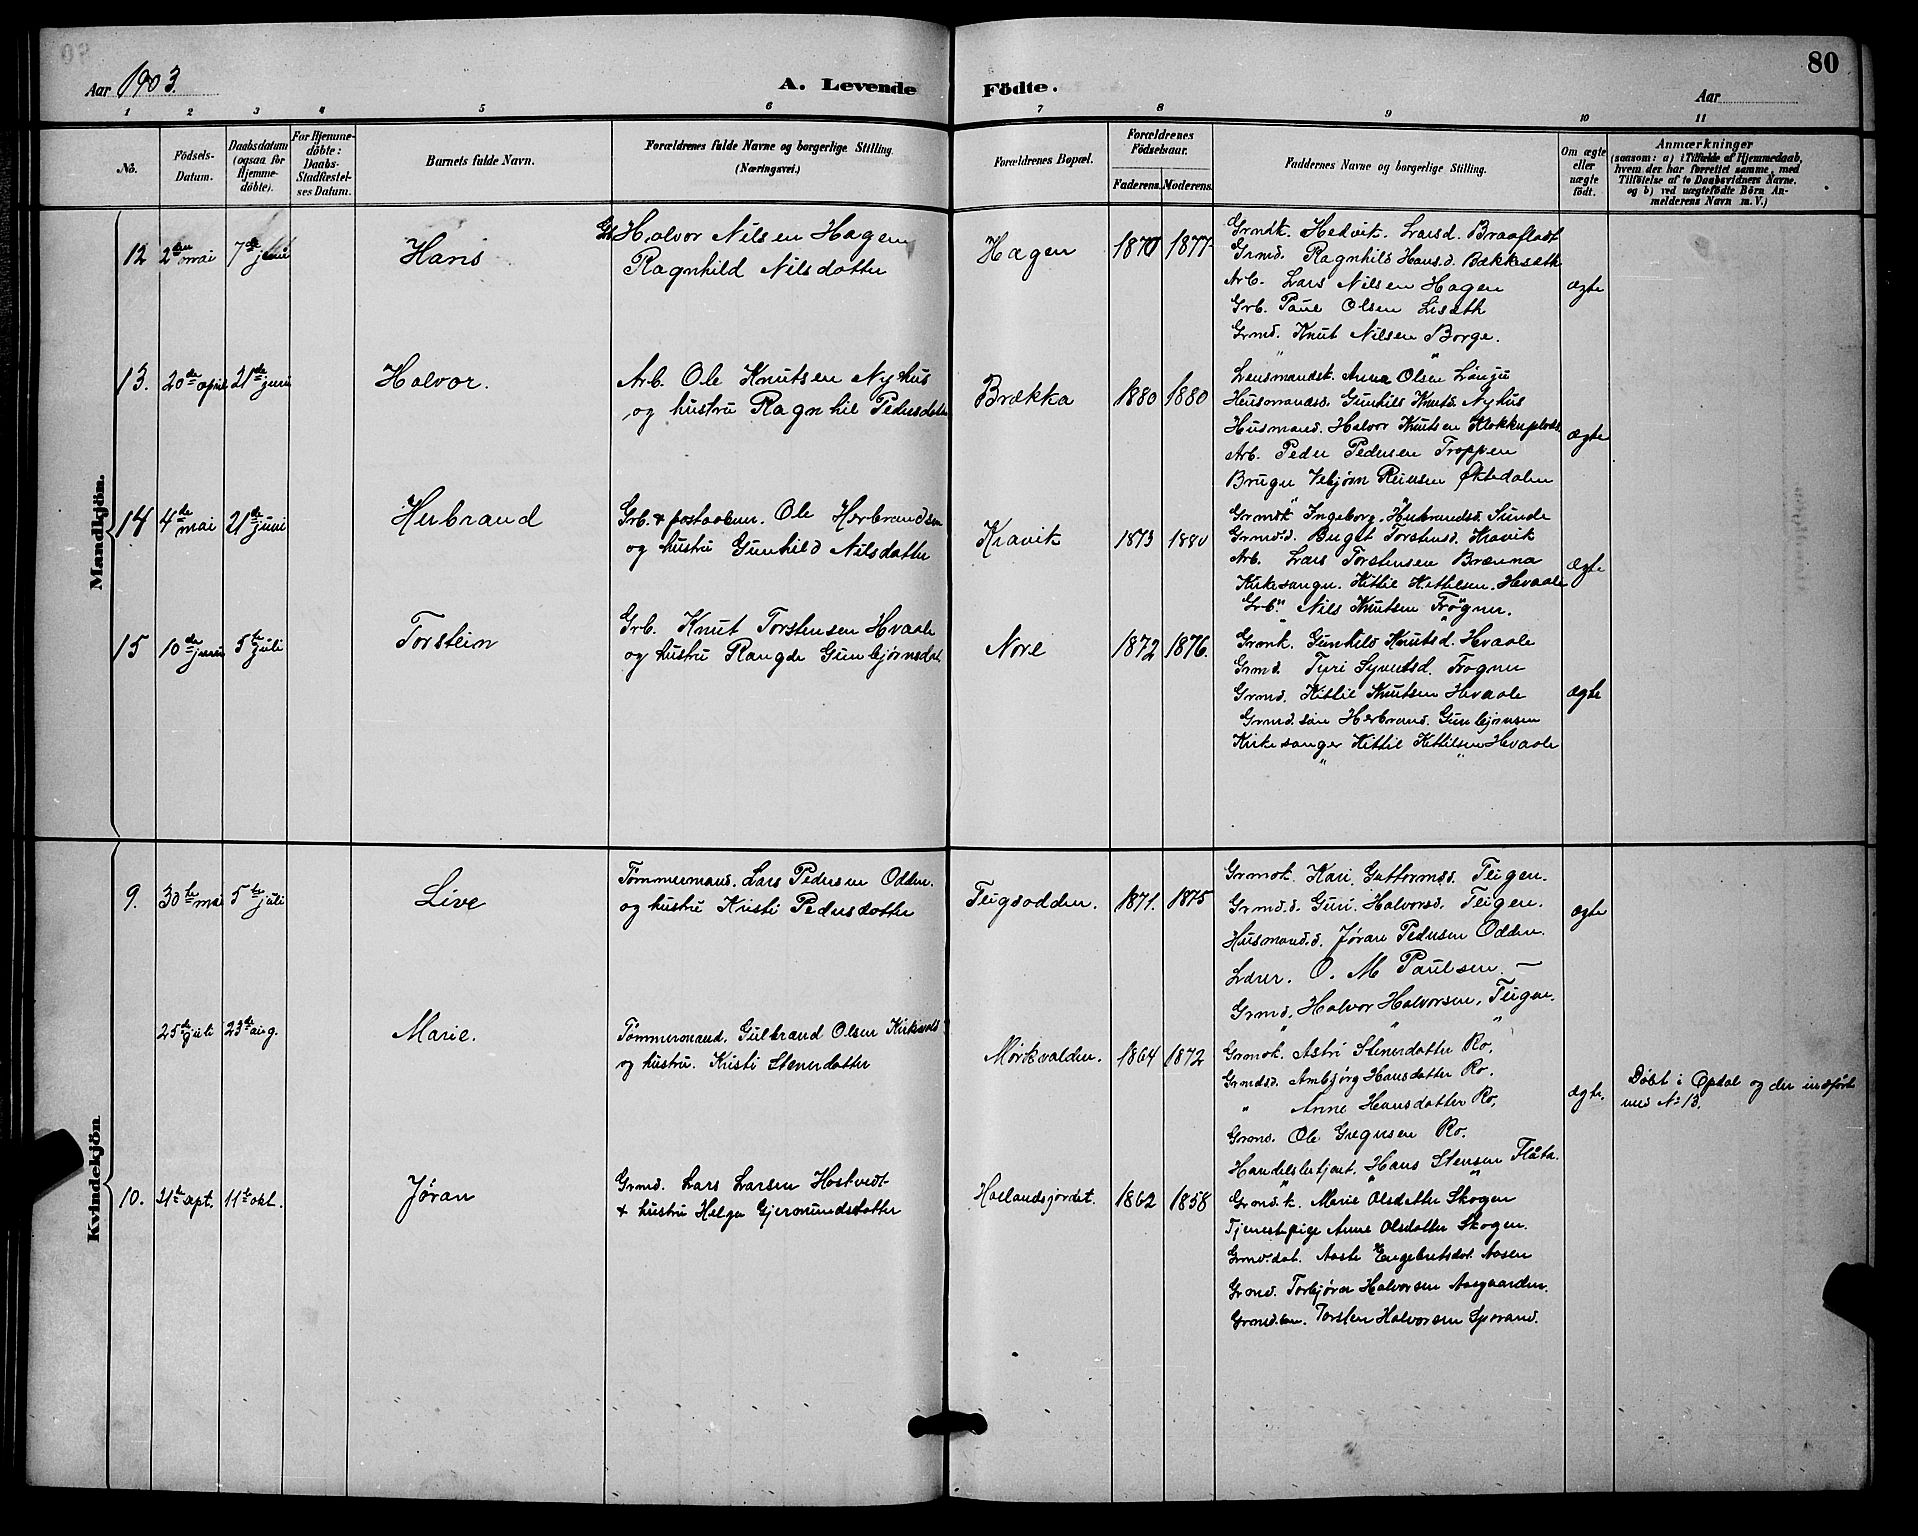 80
Aar 1903.
A. Levende Födte.
Aar
1 2 3 4 5 6 7 8 9 10 11
No.
Födsels-Datum.
Daabsdatum (ogsaa for Hjemme-döbte).
For Hjemme-döbte: Daabs-Stadfæstel-ses Datum.
Barnets fulde Navn.
Forældrenes fulde Navne og borgerlige Stilling.
(Næringsvei.)
Forældrenes Bopæl.
Forældrenes Födselsaar.
Faderens. Moderens.
Faddernes Navne og borgerlige Stilling.
Om ægte eller uægte födt.
Anmærkninger
(saasom: a) i Tilfælde af Hjemmedaab,
hvem der har forrettet samme, med
Tilföielse af to Daabsvidners Navne.
og b) ved uægtefödte Börn An-
melderens Navn m. V.)
Mandkjön.
12 2den mai 7de juni Hans
Halvor Nilsen Hagen
Ragnhild Nilsdatter
Hagen 1870 1877
Grmdk. Hedvik. Larsd. Braafladt
Grmd. Ragnhild Hansd. Bækkesæth
Arb. Lars Nilsen Hagen
Grb. Paul Olsen Lisæth
Grmd. Knut Nilsen Borge.
ægte
13. 20de april 21de juni Halvor.
Arb. Ole Knutsen Nyhus
og hustru Ragnhil Pedersdatter
Brækka 1880 1880
Lensmandsk. Anna Olsen
Husmandsd. Gunhild Knuts. Nyhus
Husmand. Halvor Knutsen Klokkuplads.
Arb. Peder Pedersen Troppen
Bruger Vebjørn Reiersen Øktedalen
ægte
14 4de mai 21de juni Herbrand
Grb. & postaabner. Ole Herbrandsen
og hustru Gunhild Nilsdatter
Kravik 1873 1880
Grmdk Ingeborg. Herbrandsd. Sunde
Grmd.d. Birget Torstensd. Kravik
Arb. Lars Torstensen Brænna
Kirkesanger. Kittil Kittilsen. Hvaale
Grb. Nils Knutsen Frøgner.
ægte
15 10de juni 5te juli Torstein
Grb. Knut Torstensen Hvaale
og hustru Rangde Gunbjørnsdat.
Nore 1872 1876.
Grmk. Gunhild Knutsd. Hvaale
Grmd. Turi Syvertsd. Frogner
Grmd. Kittil Knutsen Hvaale
Grmd. søn Herbrand. Gunbjørnsen
Kirkesanger Kittil Kittilsen Hvaale
ægte
Kvindekjön
9. 30te mai 5te juli Live
Tømmermand. Lars Pedersen Odden.
og hustru Kristi Pedersdatter
Teigsodden. 1871. 1875
Grmdk. Kari. Guttormsd. Teigen.
Grmd.d. Guri. Halvorsd. Teigen.
Husmandsd. Jøran Pedersen Odden.
Lærer. O. M Paulsen. —
Grmd. Halvor Halvorsen, Teigen.
ægte
25de juli 23de aug. Marie.
Tømmermand. Gulbrand Olsen Kirkevold
og hustru. Kristi Stenersdatter
Mørkvolden. 1864 1872
Grmdk. Astri Stenerdatter Ro.
Grmdsd. Ambjørg Hansdatter Ro.
" Anne Hansdatter Ro.
Grmd. Ole Gregersen Ro.
Handelsbetjent. Hans Stensen Flåta.
ægte.
Døbt i Opdal og der indført
med No 13.
10. 21de spt. 11te okt. Jøran
Grmd. Lars Larsen Hostvedt
& hustru Helge Gjermundsdatter
Haslandsjordet. 1862 1858
Grmd.k. Marie Olsdatter Skogen
Tjenestepige Anne Olsdatter Skogen.
Grmd.dat. Aaste Engebretsdat. Aasen
Grmd. Torbjørn Halvorsen Aasgaarden.
Grmd.søn. Torsten Halvorsen Sporand.